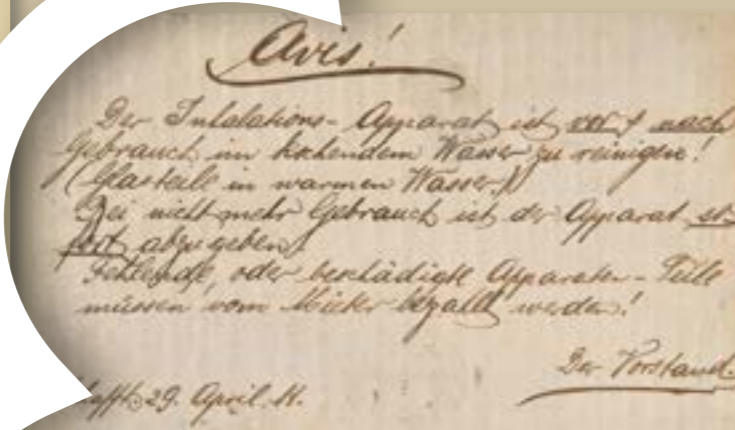 Avis!
Der Inhalations-Apparat ist vor & nach
Gebrauch im kochendem Wasser zu reinigen!
(Glasteile in warmen Wasser.)
Bei nicht mehr Gebrauch ist der Apparat so-
fort abzugeben.
Fehlende, oder beschädigte Apparaten-Teile
müssen vom Mieter bezallt werden!
Der Vorstand.
29. April.